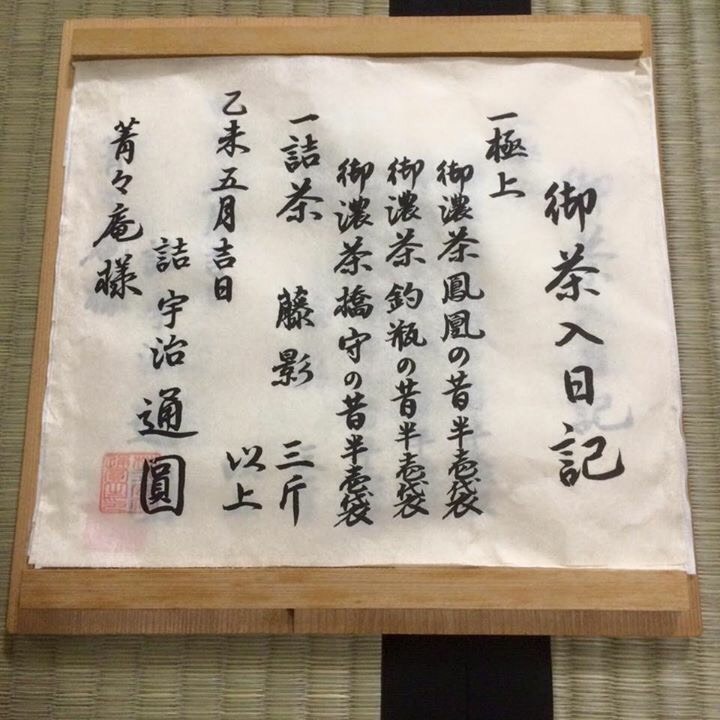 御茶入日記
一極上
御濃茶鳳凰の昔半壱袋
御濃茶釣瓶の昔半壱袋
御濃茶橋守の昔半壱袋
一詰茶 藤影 三斤
以上
乙未五月吉日
詰宇治通圓
菁々庵様